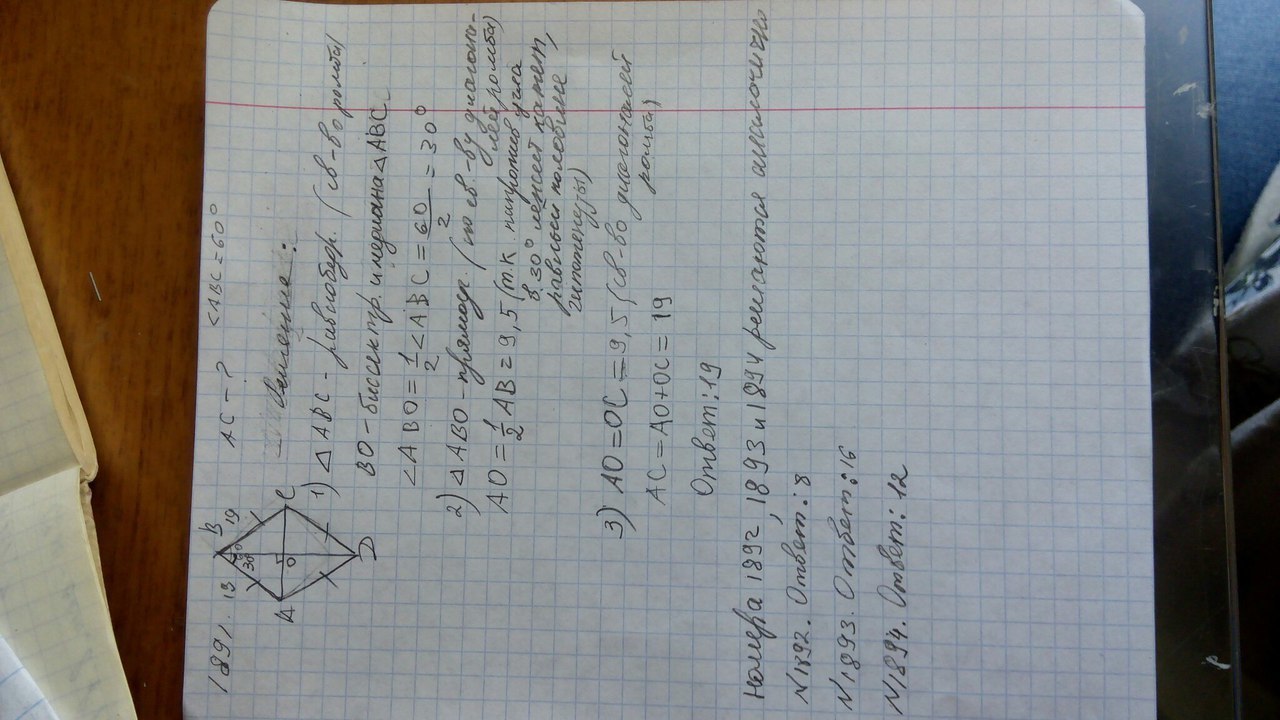 1891.
B
19
19
60°
30°
A
C
O
D
AC - ?
<ABC=60°
Решение:
1) △ABC - равнобедр. (св-во ромба)
BO - биссектр. и медиана △ABC
<ABO = 1/2 <ABC = 60/2 = 30°
2) △ABO - прямоуг. (по св.-ву диагона-
лей ромба)
AO = 1/2 AB = 9,5 (т.к. напротив угла
в 30° лежит катет,
равный половине
гипотенузы)
3) AO=OC=9,5 (св-во диагоналей
ромба)
AC=AO+OC=19
Ответ: 19
Номера 1892, 1893 и 1894 решаются аналогично
N1892. Ответ: 8
N1893. Ответ: 16
N1894. Ответ: 12